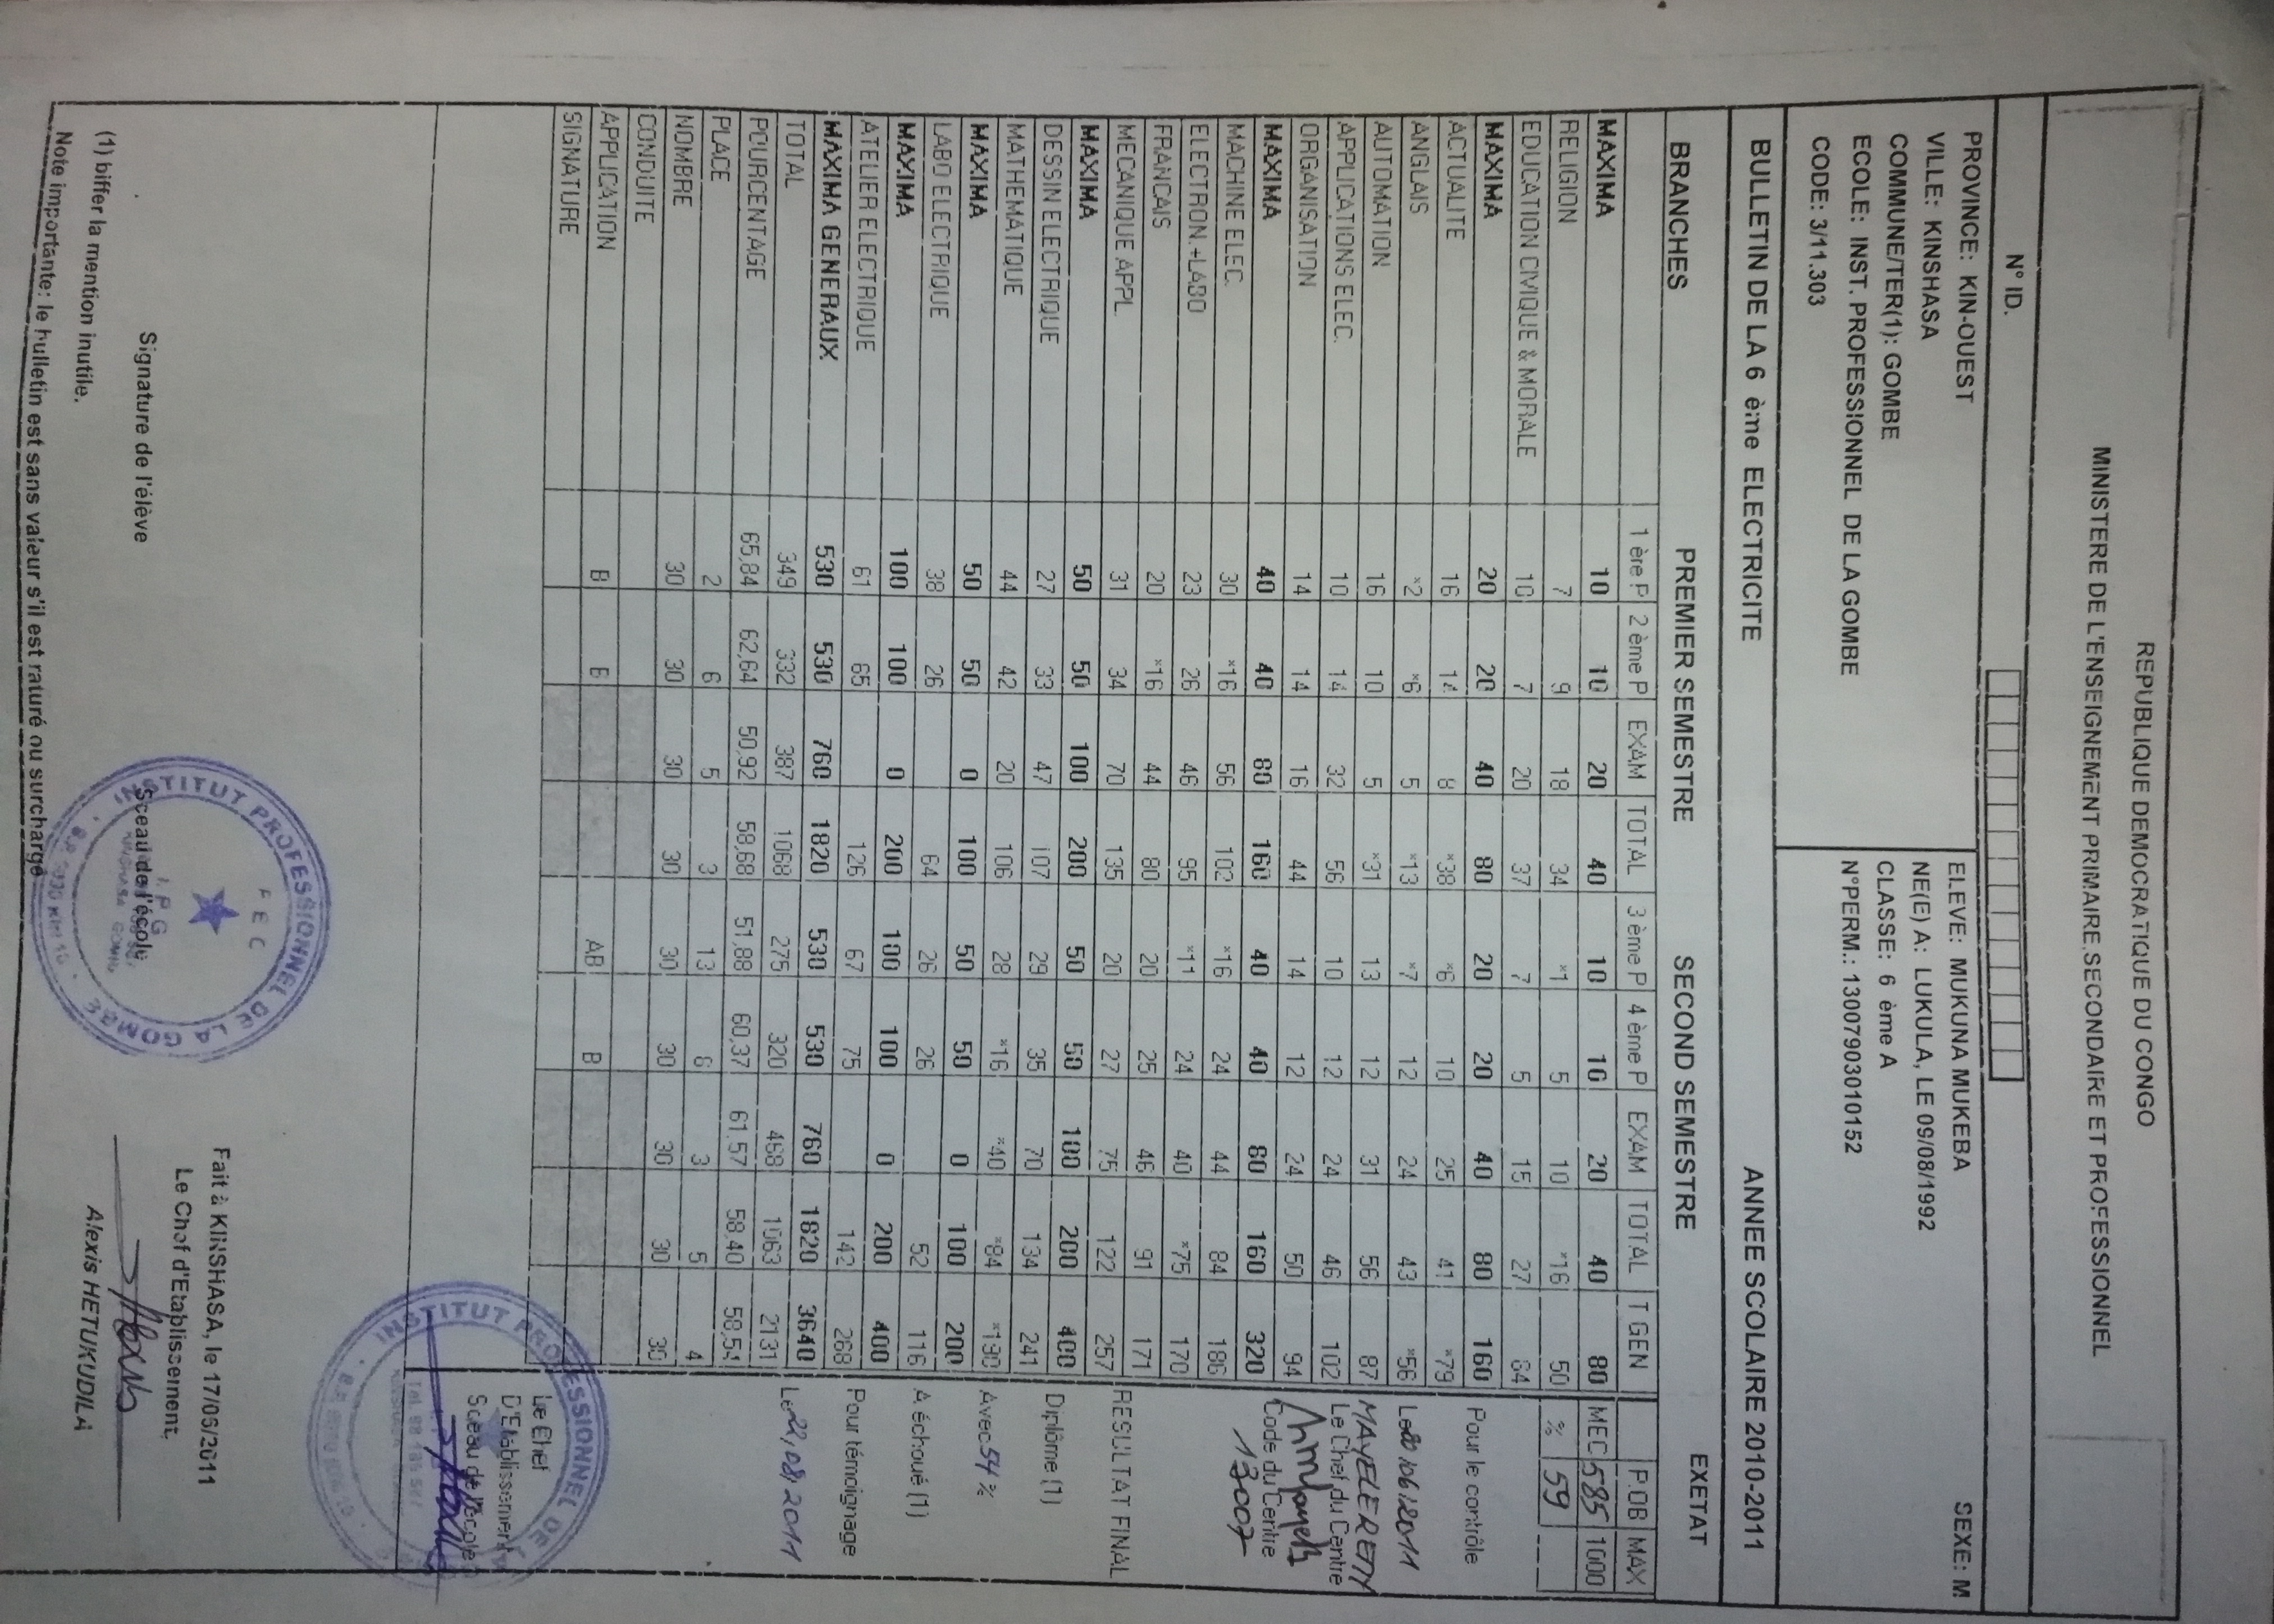 REPUBLIQUE DEMOCRATIQUE DU CONGO
MINISTERE DE L'ENSEIGNEMENT PRIMAIRE,SECONDAIRE ET PROFESSIONNEL
N° ID.
PROVINCE: KIN-OUEST
VILLE: KINSHASA
COMMUNE/TER(1): GOMBE
ECOLE: INST. PROFESSIONNEL DE LA GOMBE
CODE: 3/11.303
ELEVE: MUKUNA MUKEBA SEXE: M
NE(E) A: LUKULA, LE 09/08/1992
CLASSE: 6 ème A
N°PERM.: 13007903010152
BULLETIN DE LA 6 ème ELECTRICITE ANNEE SCOLAIRE 2010-2011
BRANCHES PREMIER SEMESTRE SECOND SEMESTRE EXETAT
1 ère P 2 ème P EXAM TOTAL 3 ème P 4 ème P EXAM TOTAL T GEN P.OB MAX
MAXIMA 10 10 20 40 10 10 20 40 80 MEC 585 1000
RELIGION 7 9 18 34 *1 5 10 *16 50 % 59
EDUCATION CIVIQUE & MORALE 10 7 20 37 7 5 15 27 64
MAXIMA 20 20 40 80 20 20 40 80 160 Pour le contrôle
ACTUALITE 16 14 8 *38 *6 10 25 41 *79
ANGLAIS *2 *6 5 *13 *7 12 24 43 *56 Le 20/06/2011
AUTOMATION 16 10 5 *31 13 12 31 56 87 MAYELE REMY
APPLICATIONS ELEC. 10 14 32 56 10 12 24 46 102 Le Chef du Centre
ORGANISATION 14 14 16 44 14 12 24 50 94
MAXIMA 40 40 80 160 40 40 80 160 320 Code du Centre
MACHINE ELEC. 30 *16 56 102 *16 24 44 84 186 13007
ELECTRON.+LABO 23 26 46 95 *11 24 40 *75 170
FRANCAIS 20 *16 44 80 20 25 46 91 171
MECANIQUE APPL. 31 34 70 135 20 27 75 122 257 RESULTAT FINAL
MAXIMA 50 50 100 200 50 50 100 200 400
DESSIN ELECTRIQUE 27 33 47 107 29 35 70 134 241 Diplôme (1)
MATHEMATIQUE 44 42 20 106 28 *16 *40 *84 *190
MAXIMA 50 50 0 100 50 50 0 100 200 Avec 54 %
LABO ELECTRIQUE 38 26 64 26 26 52 116 A échoué (1)
MAXIMA 100 100 0 200 100 100 0 200 400
ATELIER ELECTRIQUE 61 65 126 67 75 142 268 Pour témoignage
MAXIMA GENERAUX 530 530 760 1820 530 530 760 1820 3640
TOTAL 349 332 387 1068 275 320 468 1063 2131 Le 22/08/2011
POURCENTAGE 65,84 62,64 50,92 58,68 51,88 60,37 61,57 58,40 58,54
PLACE 2 6 5 3 13 6 3 5 4
NOMBRE 30 30 30 30 30 30 30 30 30
CONDUITE
APPLICATION B B AB B
SIGNATURE
Le Chef
D'Etablissement
Sceau de l'école
INSTITUT PROFESSIONNEL DE LA GOMBE
Fait à KINSHASA, le 17/06/2011
Le Chef d'Etablissement,
Alexis HETUKUDILA
Signature de l'élève
Sceau de l'école
INSTITUT PROFESSIONNEL DE LA GOMBE
FEC
I.P.G
(1) biffer la mention inutile.
Note importante: le bulletin est sans valeur s'il est raturé ou surchargé